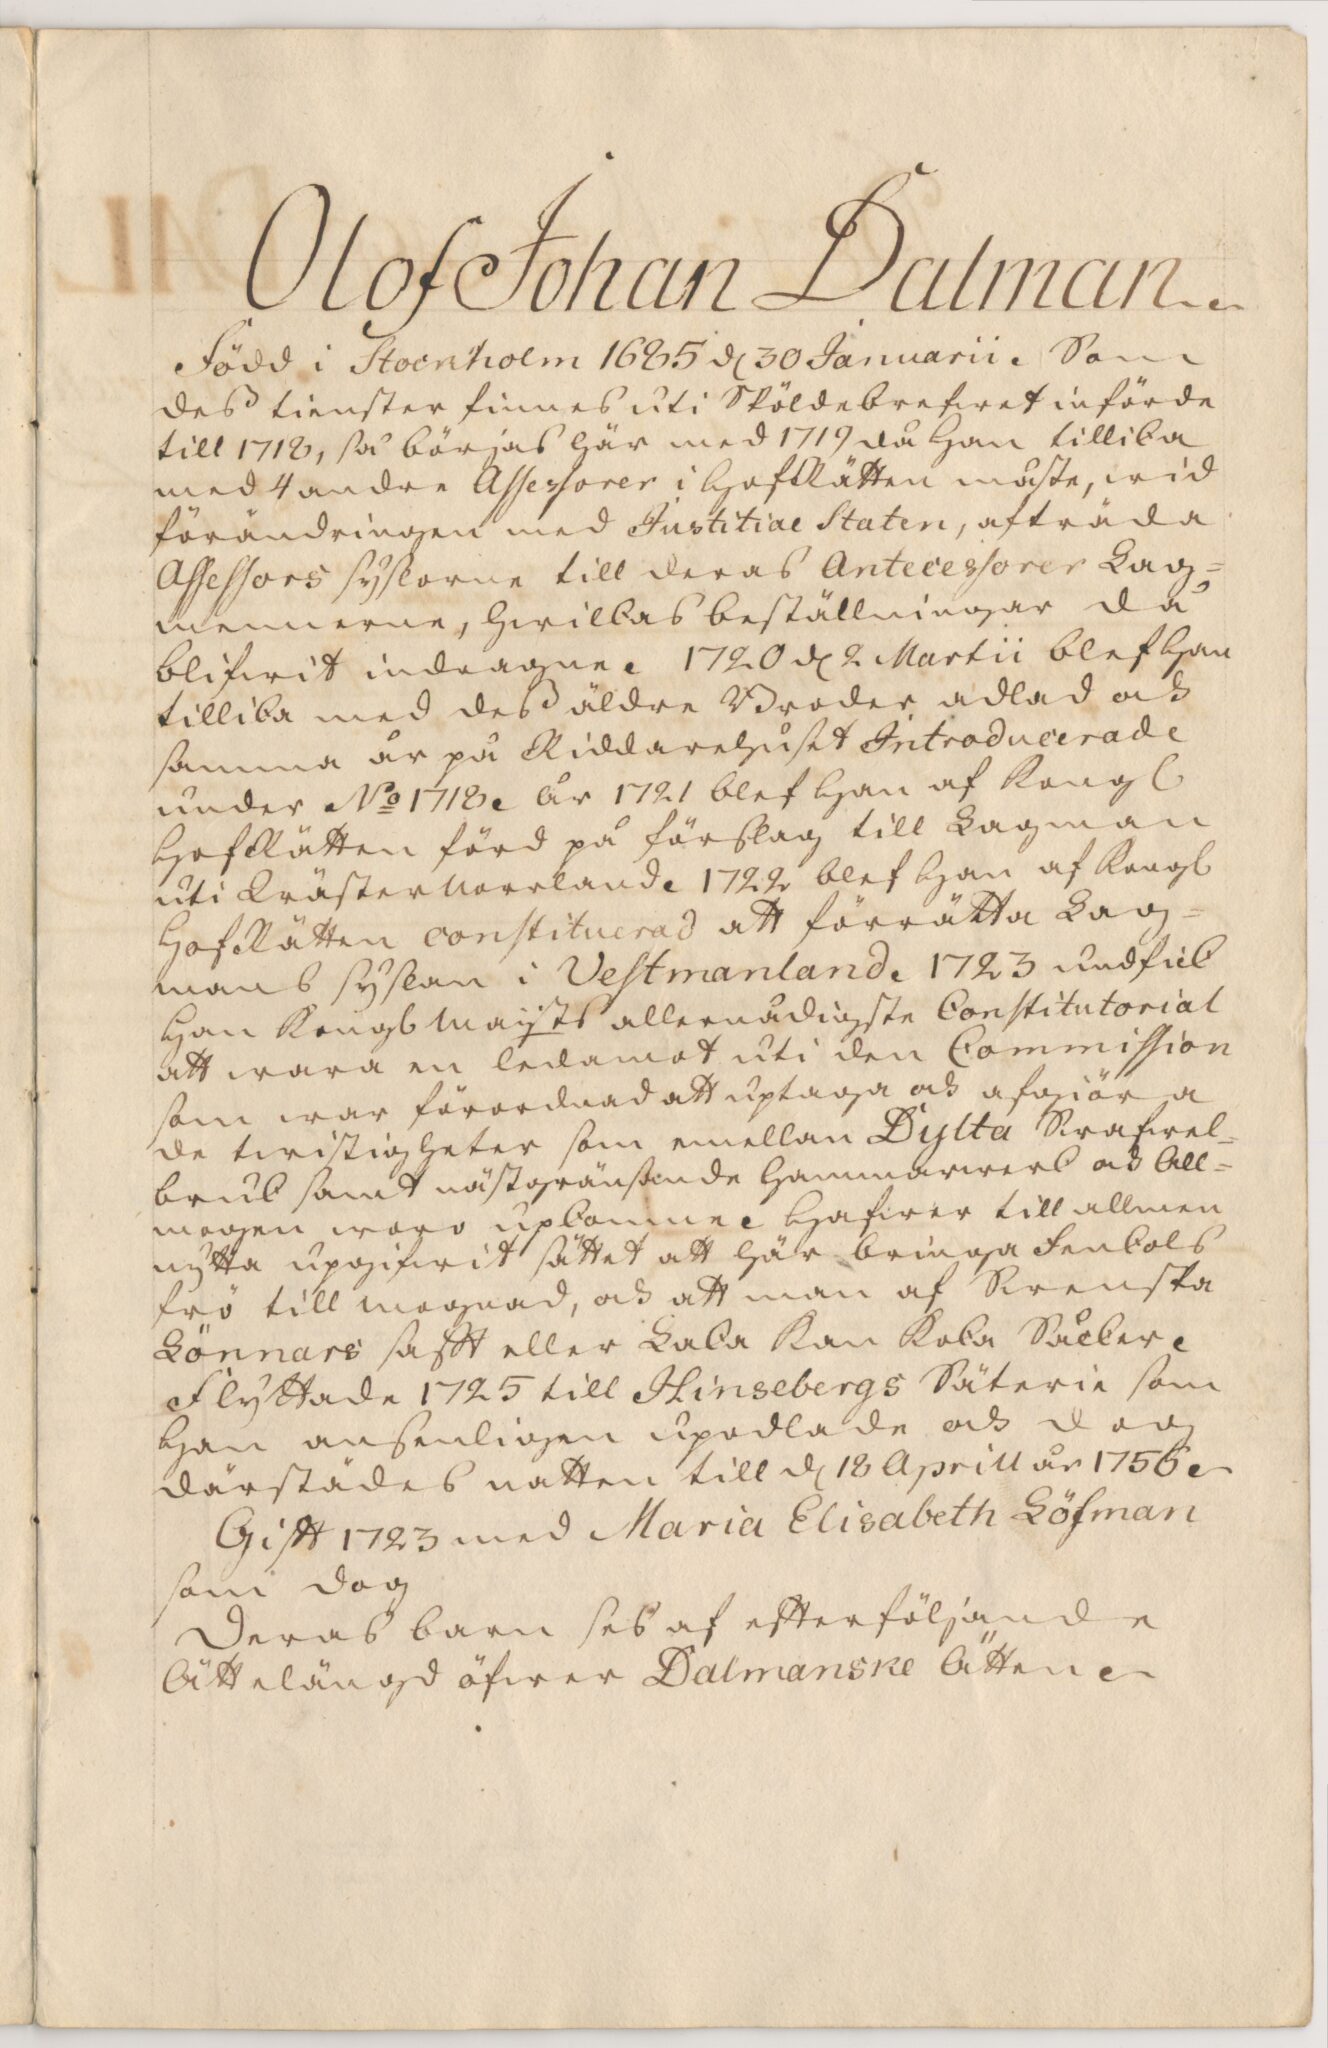 Olof Johan Dalman.
Född i Stockholm 1685 d. 30 Januarii. Som
dess tienster finnes uti Sköldebrefwet införde
till 1718, så börjas här med 1719 då Han tillika
med 4 andre Assessorer i HofRätten måste, wid
förändringen med Justitiae Staten, afträda
Assessors syslorne till deras Antecessorer Lag=
mennerne, hwilkas beställningar då
blifwit indragne. 1720 d. 2 Martii blef Han
tillika med dess äldre Broder adlad och
samma år på Riddarehuset Introducerade
under No 1718. År 1721 blef Han af Kongl
HofRätten förd på förslag till Lagman
uti Wästernorrland. 1722 blef Han af Kongl
HofRätten constituerad att förrätta Lag=
mans syslan i Vestmanland. 1723 undfick
Han Kongl Maijts allernådigste Constitutorial
att wara en ledamot uti den Commission
som war förordnad att uptaga och afgiöra
de twistigheter som emellan Dylta Swafwel=
bruk samt nästgränsande hammarwerk och All=
mogen woro upkomne. Hafwer till allmen
nytta upgifwit sättet att här bringa Fenkols
frö till mognad, och att man af Swenska
Lönnars safft eller Laka Kan Koka Såcker.
Flyttade 1725 till Hinsebergs Säterie som
Han ansenligen upodlade och dog
därstädes natten till d. 18 Aprill år 1756.
Gifft 1723 med Maria Elisabeth Löfman
som dog
Deras barn ses af efterföljande
Ättelängd öfwer Dalmanske Ätten.